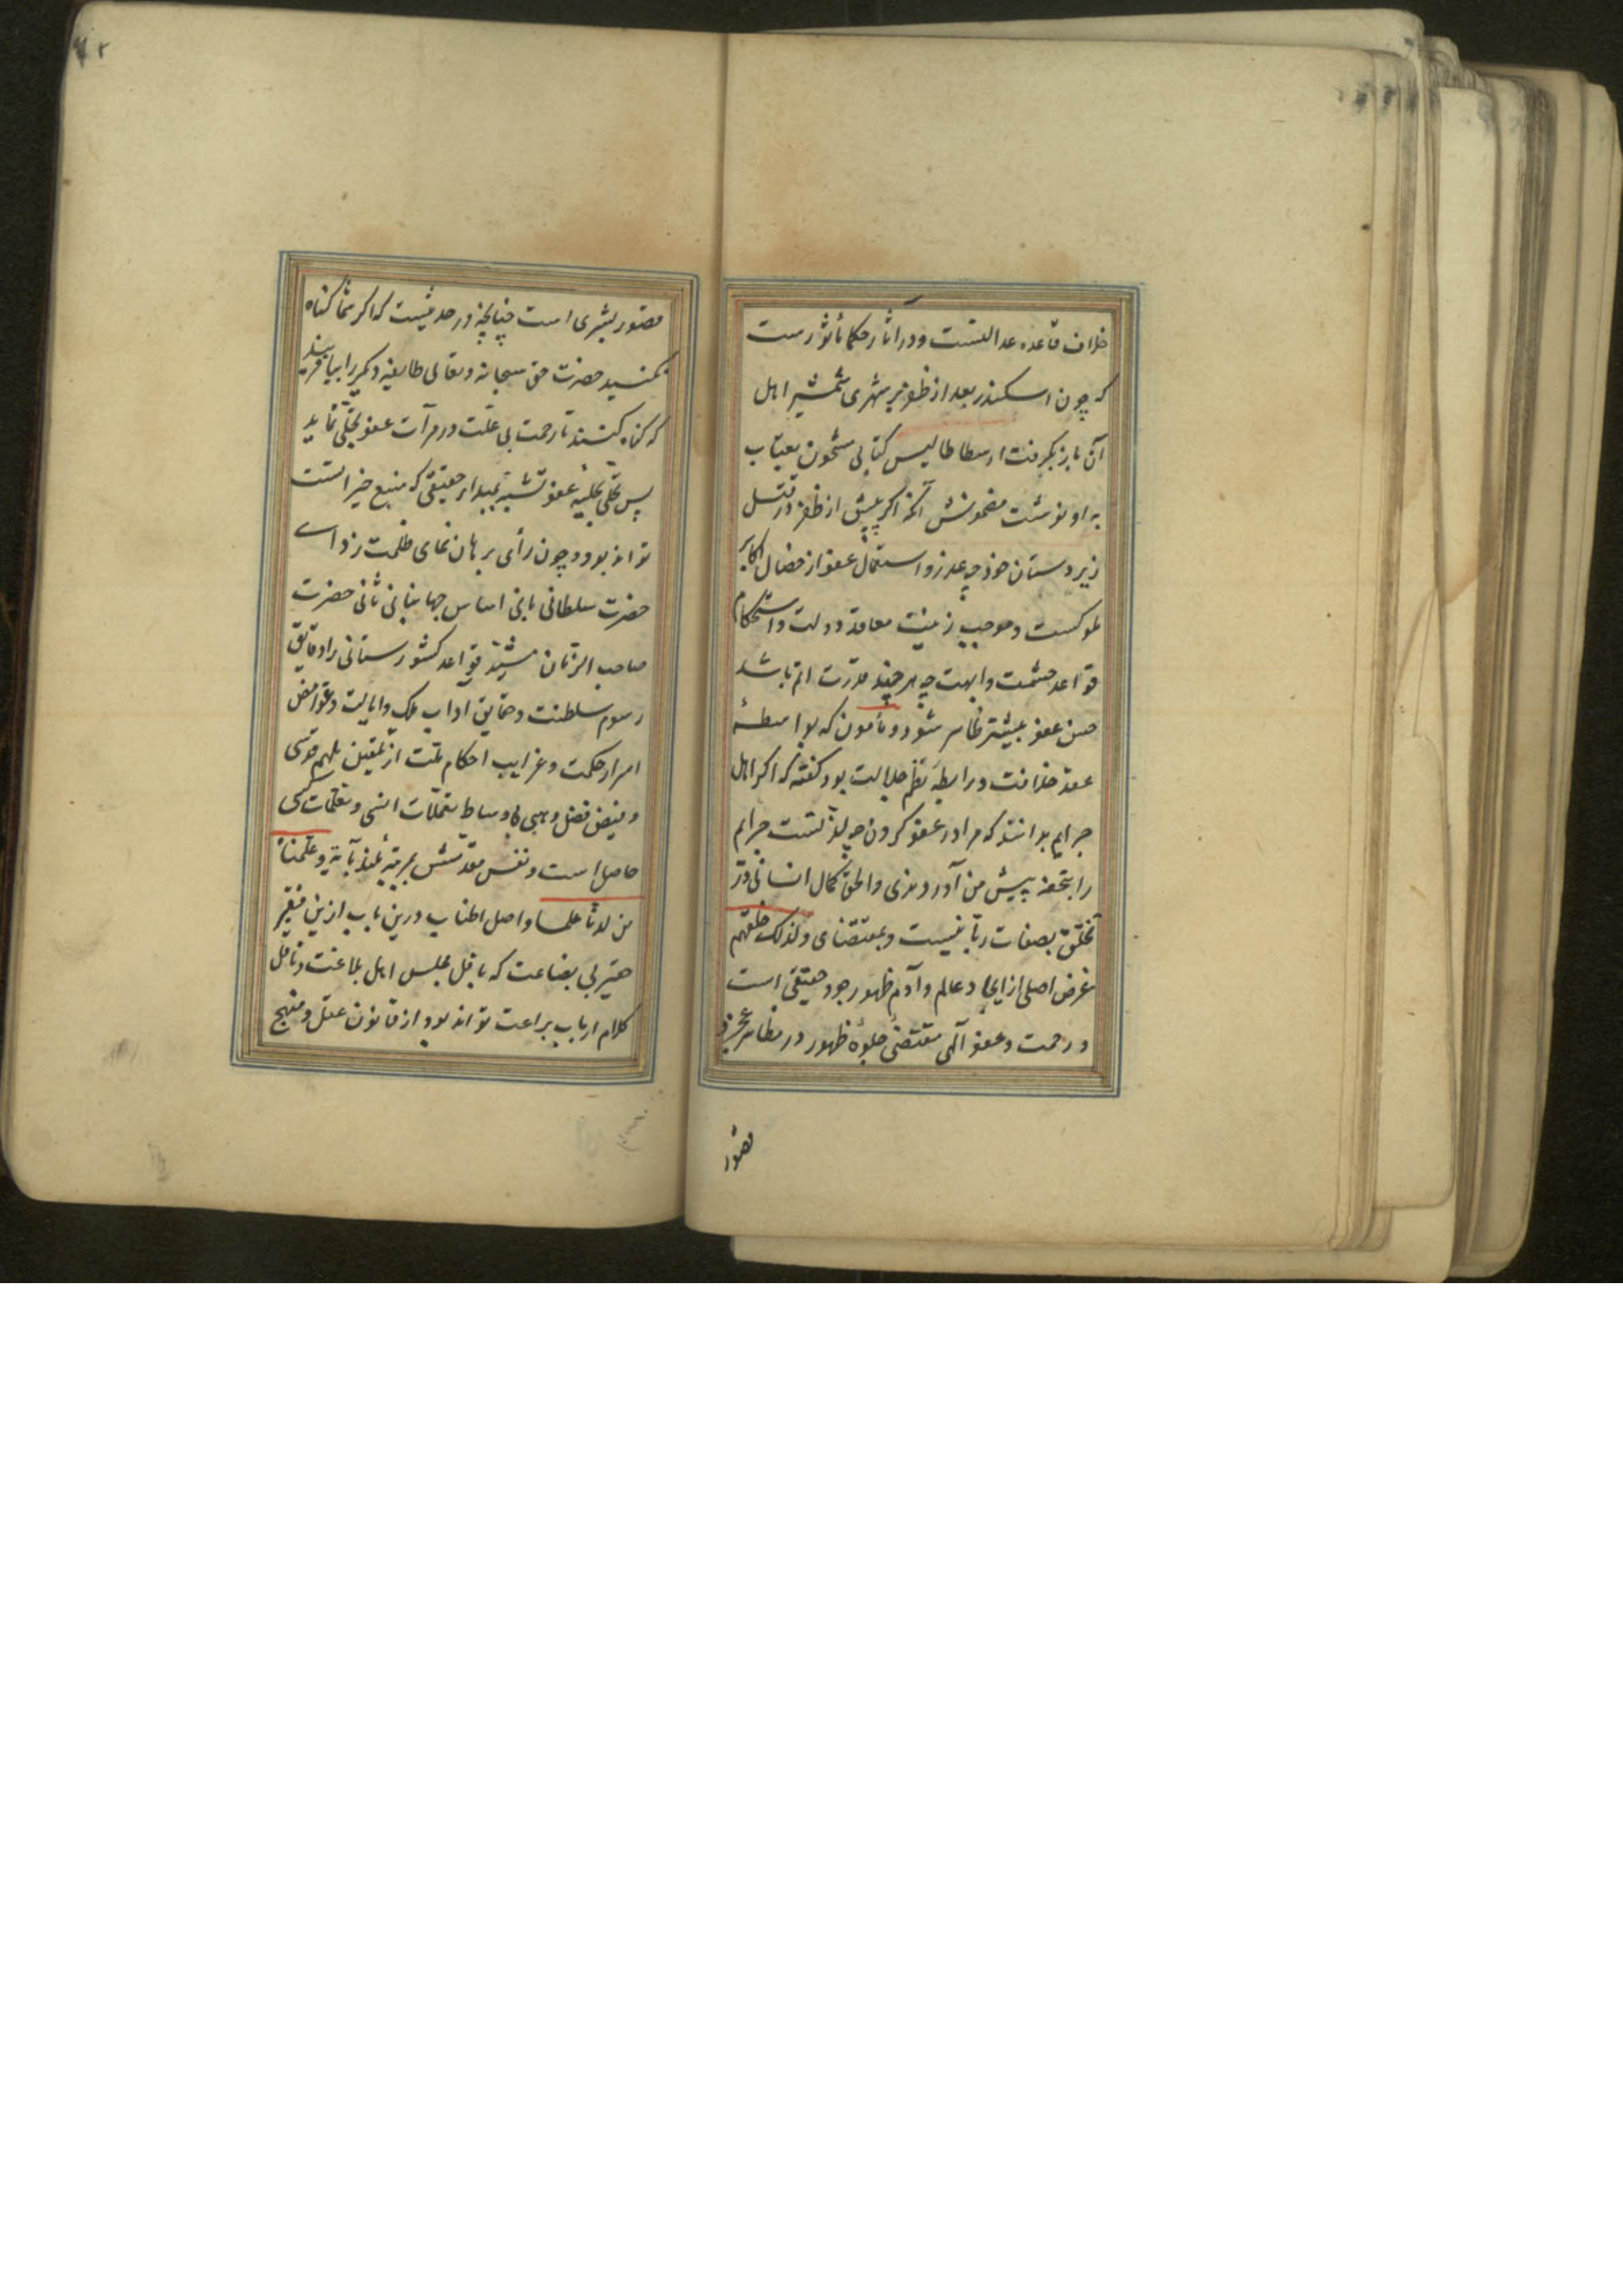 خلاف قاعده عدالتست و در آثار حکما مأثورست
که چون اسکندر بعد از ظفر بر شهری شمشیر از اهل
آن باز نگرفت ارسطاطالیس کتابی مشحون بعتاب
به او نوشت مضمونش آنکه اگر پیش از ظفر در قتل
زیردستان خود چه عذر و استعمال عفو از خصال اکابر
ملوکست و موجب زینت معاقد دولت و استحکام
قواعد حشمت و ابهت چه هر چند قدرت اتم باشد
حسن عفو بیشتر ظاهر شود و مأمون که بواسطهٔ
عقد خلافت و رابطهٔ نظم جلالت بود گفته که اگر اهل
جرایم بدانند که مرا در عفو کردن چه لذتست جرایم
را بتحفه پیش من آوردندی و الحق کمال انسانی در
تخلق بصفات ربانیست و بمقتضای ولذلک خلقهم
غرض اصلی از ایجاد عالم و آدم ظهور جود حقیقی است
و رحمت و عفو آلهی مقتضی جلوهٔ ظهور در مظاهر عجز و
قصور
قصور بشری است چنانچه در حدیثست که اگر شما گناه
نکنید حضرت حق سبحانه و تعالی طایفه دیگر را بیافریند
که گناه کنند تا رحمت بی علت در مرآت عفو تجلی نماید
پس تحلی بحلیه عفو تشبه بمبداء حقیقی که منبع خیراتست
تواند بود و چون رأی برهان نمای ظلمت زدای
حضرت سلطانی بانی اساس جهانبانی ثانی حضرت
صاحب الزمان مشید قواعد کشورستانی را دقایق
رسوم سلطنت و حقایق آداب ملک و ایالت و غوامض
اسرار حکمت و غرایب احکام ملت از تلقین ملهم قدسی
و فیض فضل وهبی بی وساط تعملات انسی و تعلمات کسبی
حاصل است و نفس مقدسش بمرتبه تلمذ بآیة و علمناه
من لدنا علما واصل اطناب درین باب ازین فقیر
حقیر بی بضاعت که ناقل مجلس اهل بلاغت و ناقل
کلام ارباب براعت تواند بود از قانون عقل و منهج